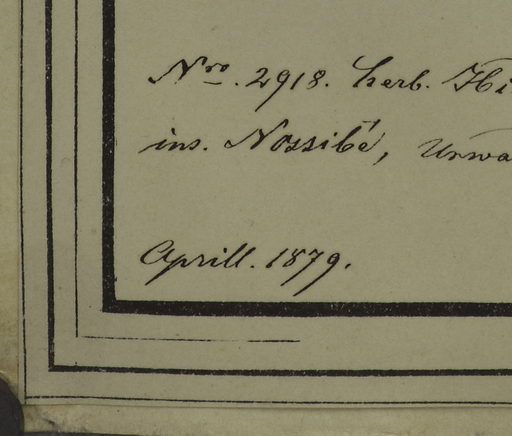 Nro. 2918. herb. Hi
ins. Nossibé, Urwa
Aprill. 1879.